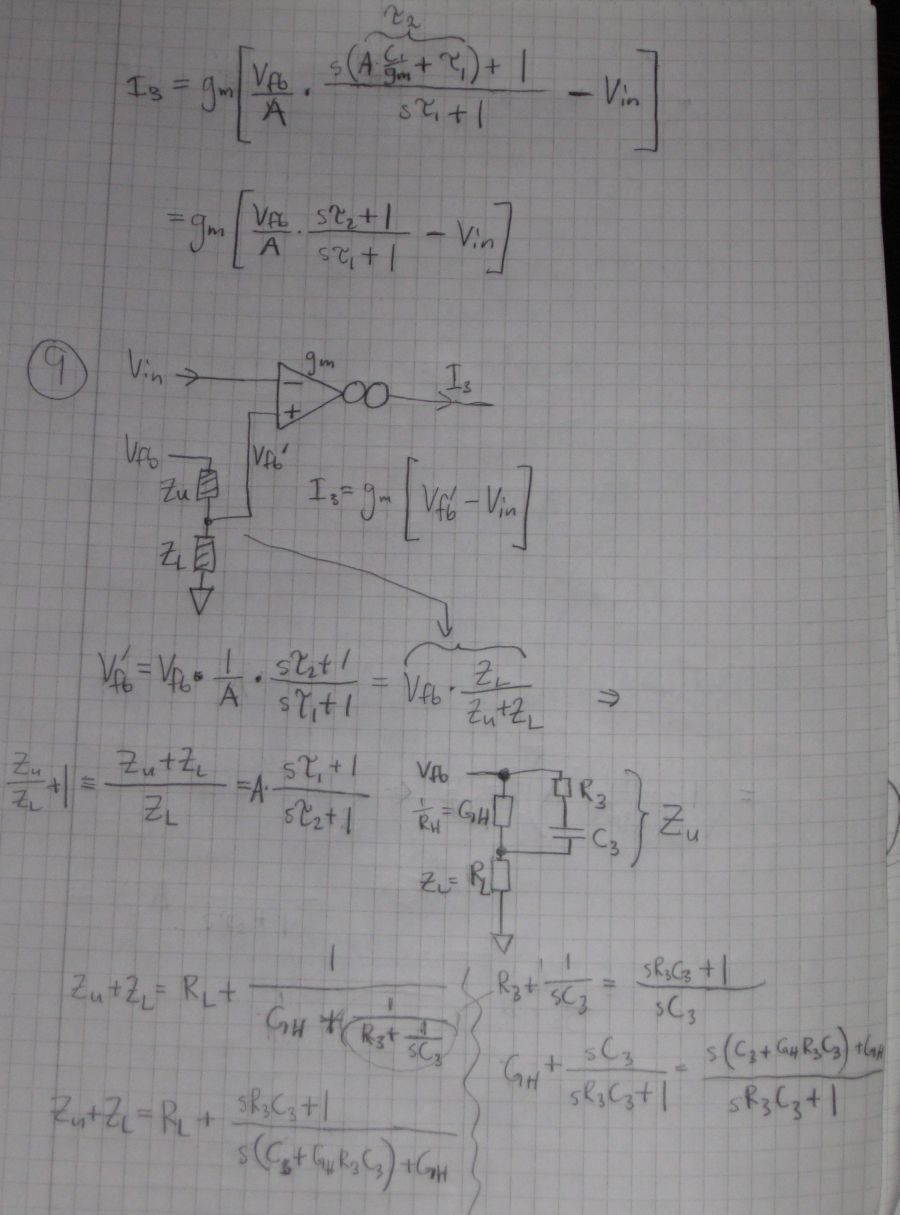 τ₂
I₃ = gm [ Vfb/A · (s(A · C₁/gm + τ₁) + 1)/(sτ₁ + 1) − Vin ]
= gm [ Vfb/A · (sτ₂ + 1)/(sτ₁ + 1) − Vin ]
9
Vin
gm
−
+
I₃
Vfb
Vfb′
Zu
ZL
I₃ = gm [ Vfb′ − Vin ]
Vfb′ = Vfb · 1/A · (sτ₂ + 1)/(sτ₁ + 1) = Vfb · ZL/(Zu + ZL) ⇒
Zu/ZL + 1 ≡ (Zu + ZL)/ZL = A · (sτ₁ + 1)/(sτ₂ + 1)
Vfb
1/RH = GH
R₃
C₃
Zu
ZL = RL
Zu + ZL = RL + 1/(GH + 1/(R₃ + 1/sC₃))
R₃ + 1/sC₃ = (sR₃C₃ + 1)/sC₃
GH + sC₃/(sR₃C₃ + 1) = (s(C₃ + GHR₃C₃) + GH)/(sR₃C₃ + 1)
Zu + ZL = RL + (sR₃C₃ + 1)/(s(C₃ + GHR₃C₃) + GH)